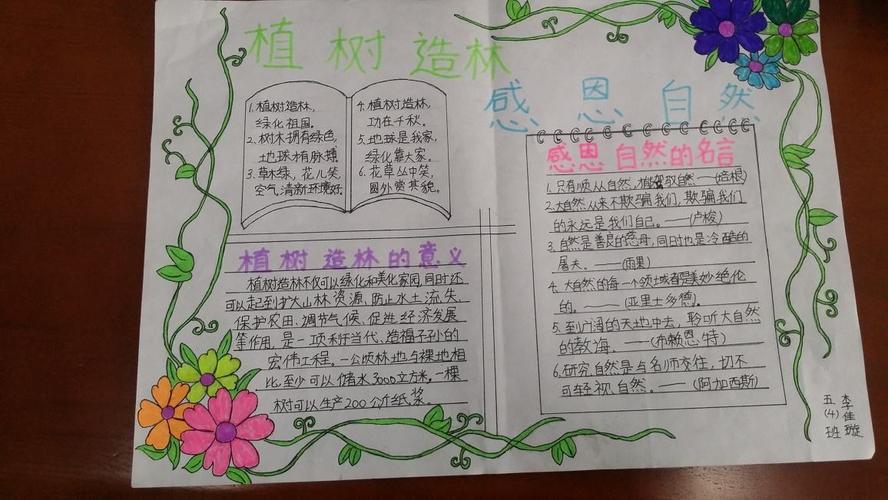 植树造林
感恩自然
1.植树造林,
绿化祖国。
2.树木拥有绿色,
地球才有脉搏
3.草木绿,花儿笑
空气清新环境好
4.植树造林,
功在千秋。
5.地球是我家,
绿化靠大家。
6.花草丛中笑,
园外赏其貌。
植树造林的意义
植树造林不仅可以绿化和美化家园,同时还
可以起到扩大山林资源、防止水土流失、
保护农田、调节气候、促进经济发展
等作用,是一项利于当代、造福子孙的
宏伟工程。一公顷林地与裸地相
比至少可以储水3000立方米。一棵
树可以生产200公斤纸浆。
感恩自然的名言
1.只有顺从自然,才能驾驭自然——(培根)
2.大自然从来不欺骗我们,欺骗我们
的永远是我们自己。——(卢梭)
3.自然是善良的慈母,同时也是冷酷的
屠夫。——(雨果)
4.大自然的每一个领域都是美妙绝伦
的。——(亚里士多德)。
5.到广阔的天地中去,聆听大自然
的教诲。——(布赖恩特)
6.研究自然是与名师交往,切不
可轻视自然。——(阿加西斯)
五(4)班
李佳璇